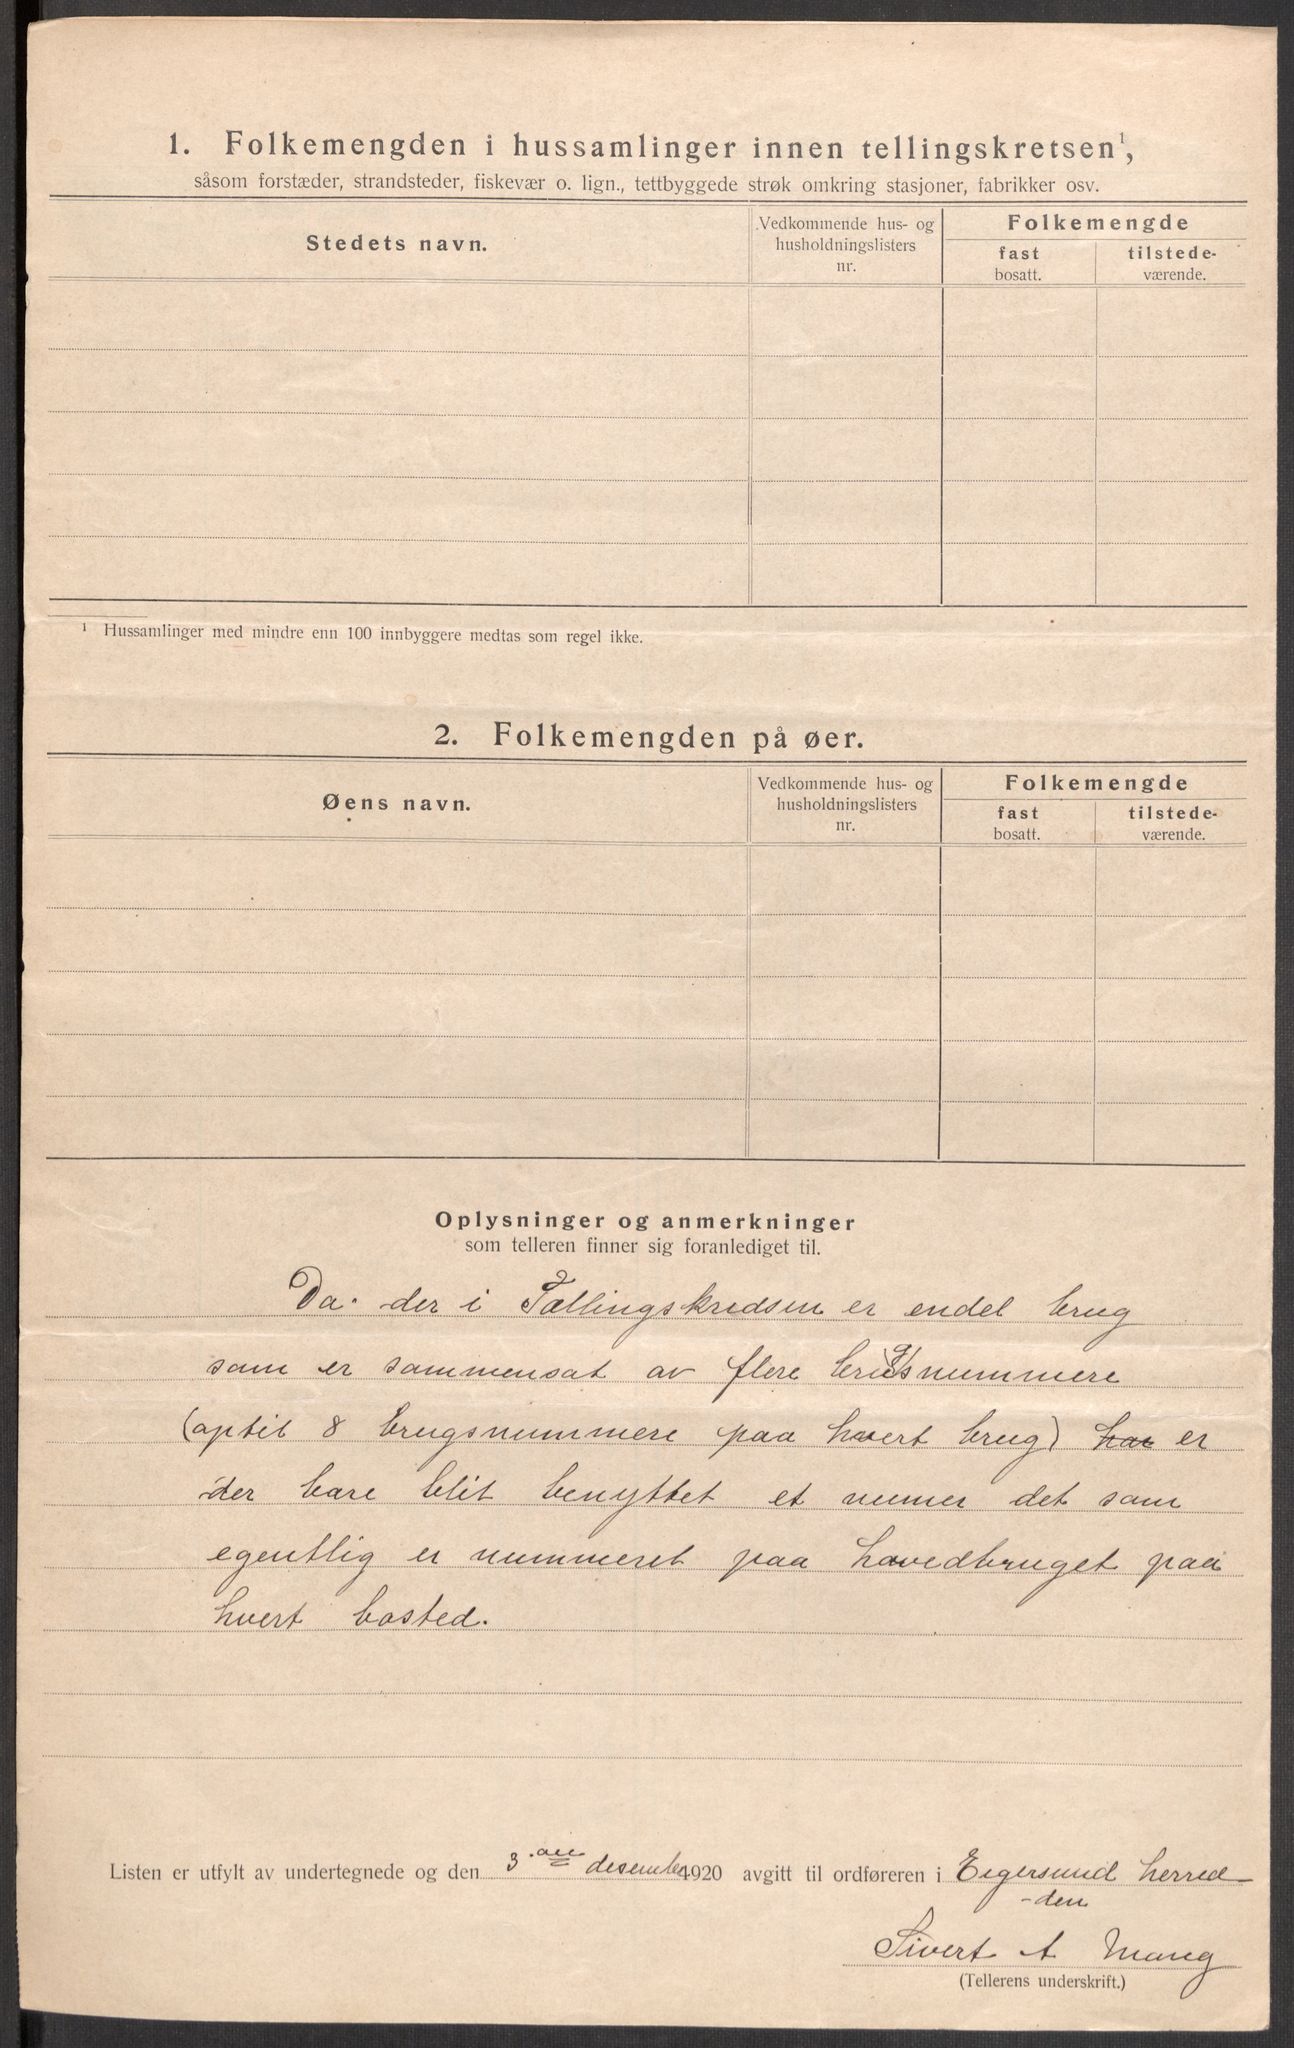 1. Folkemengden i hussamlinger innen tellingskretsen¹,
såsom forstæder, strandsteder, fiskevær o. lign., tettbyggede strøk omkring stasjoner, fabrikker osv.
Stedets navn.
Vedkommende hus- og
husholdningslisters
nr.
Folkemengde
fast
bosatt.
tilstede-
værende.
¹ Hussamlinger med mindre enn 100 innbyggere medtas som regel ikke.
2. Folkemengden på øer.
Øens navn.
Vedkommende hus- og
husholdningslisters
nr.
Folkemengde
fast
bosatt.
tilstede-
værende.
Oplysninger og anmerkninger
som telleren finner sig foranlediget til.
Da der i Tællingskredsen er endel brug
som er sammensat av flere brugsnummere
(optil 8 brugsnummere paa hvert brug) har er
der bare blit benyttet et numer det som
egentlig er nummeret paa hovedbruget paa
hvert bosted.
Listen er utfylt av undertegnede og den 3 desember 1920 avgitt til ordføreren i Eigersund herred
-den
Sivert A Mong
(Tellerens underskrift.)